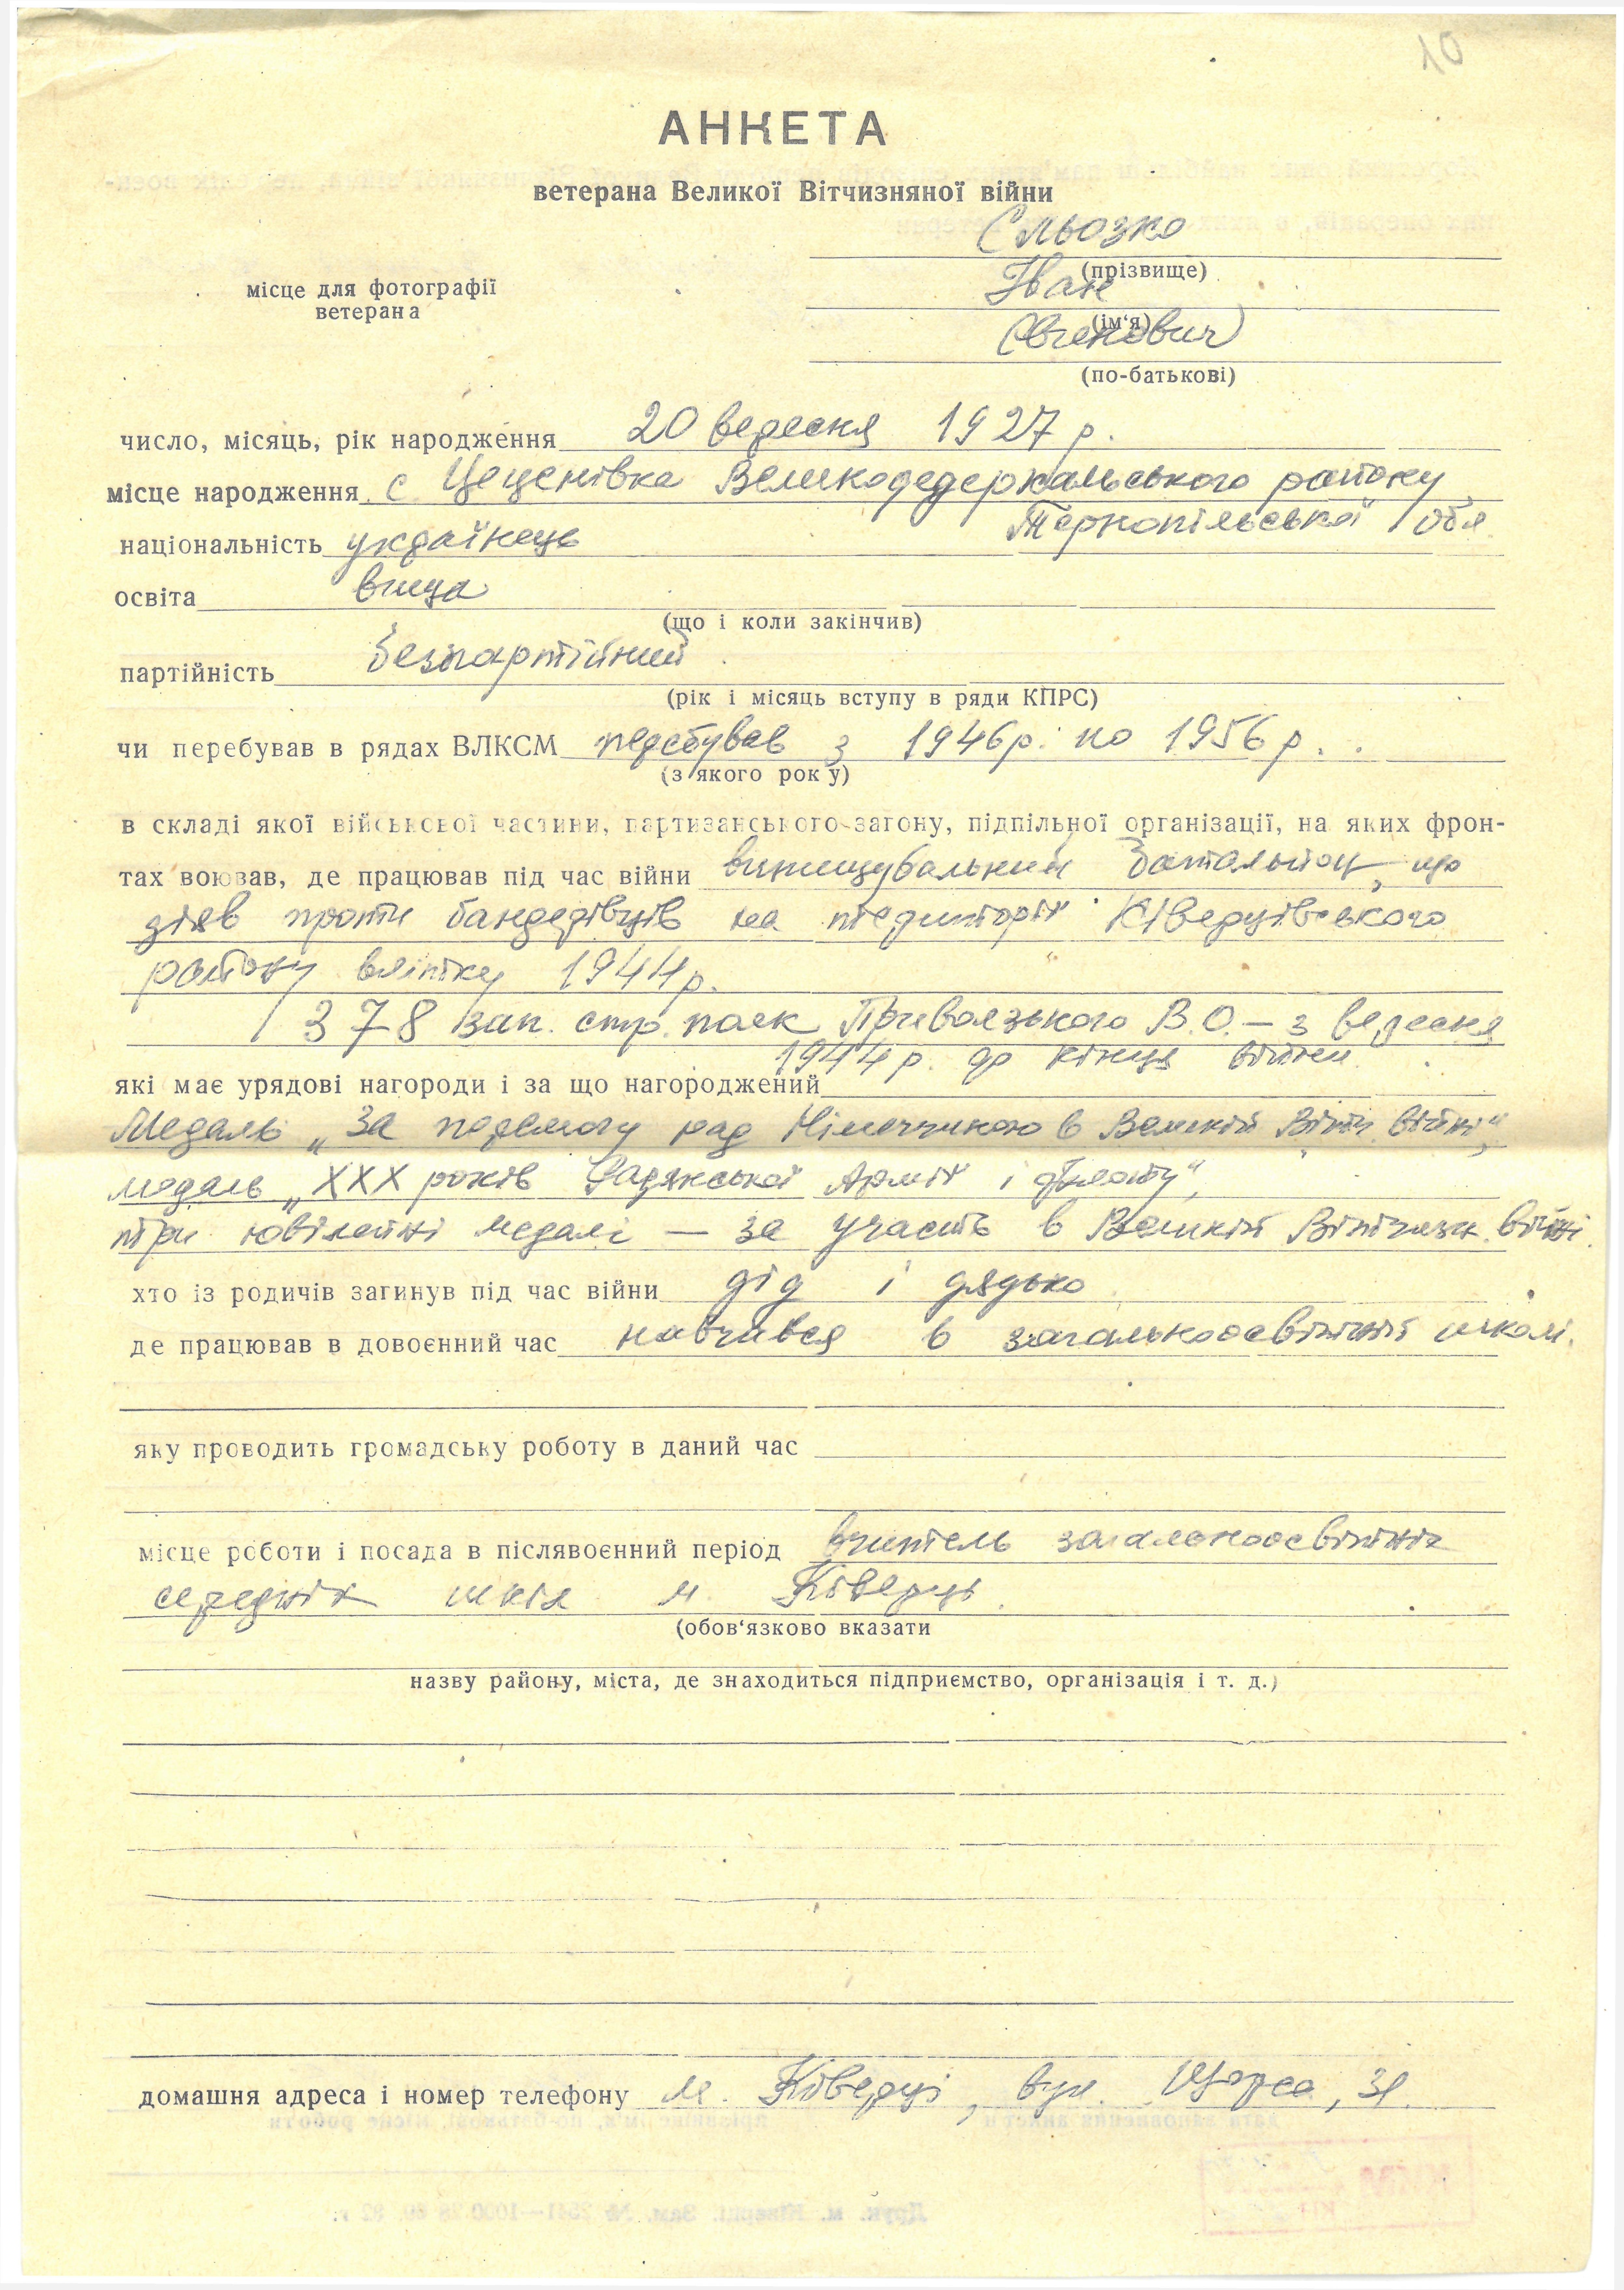 10
АНКЕТА
ветерана Великої Вітчизняної війни
Сльозко
(прізвище)
місце для фотографії
ветерана
Іван
(ім‘я)
Євгенович
(по-батькові)
число, місяць, рік народження 20 вересня 1927 р.
місце народження с Цеценівка Великодедеркальського району
Тернопільської обл.
національність українець
освіта вища
(що і коли закінчив)
партійність безпартійний
(рік і місяць вступу в ряди КПРС)
чи перебував в рядах ВЛКСМ перебував з 1946 р. по 1956 р.
(з якого року)
в складі якої військової частини, партизанського загону, підпільної організації, на яких фрон-
тах воював, де працював під час війни винищувальний батальйон, що
діяв проти бандерівців на території Ківерцівського
району влітку 1944 р.
378 зап. стр. полк Приволзького В.О. – з вересня
1944 р. до кінця війни.
які має урядові нагороди і за що нагороджений
Медаль „За перемогу над Німеччиною в Великій Вітч. війні",
медаль „XXX років Радянської Армії і флоту",
три ювілейні медалі — за участь в Великій Вітчизн. війні.
хто із родичів загинув під час війни дід і дядько
де працював в довоєнний час навчався в загальноосвітній школі.
яку проводить громадську роботу в даний час
місце роботи і посада в післявоєнний період вчитель загальноосвітніх
середніх шкіл м. Ківерць.
(обов‘язково вказати
назву району, міста, де знаходиться підприємство, організація і т. д.)
домашня адреса і номер телефону м. Ківерці, вул. Щорса,